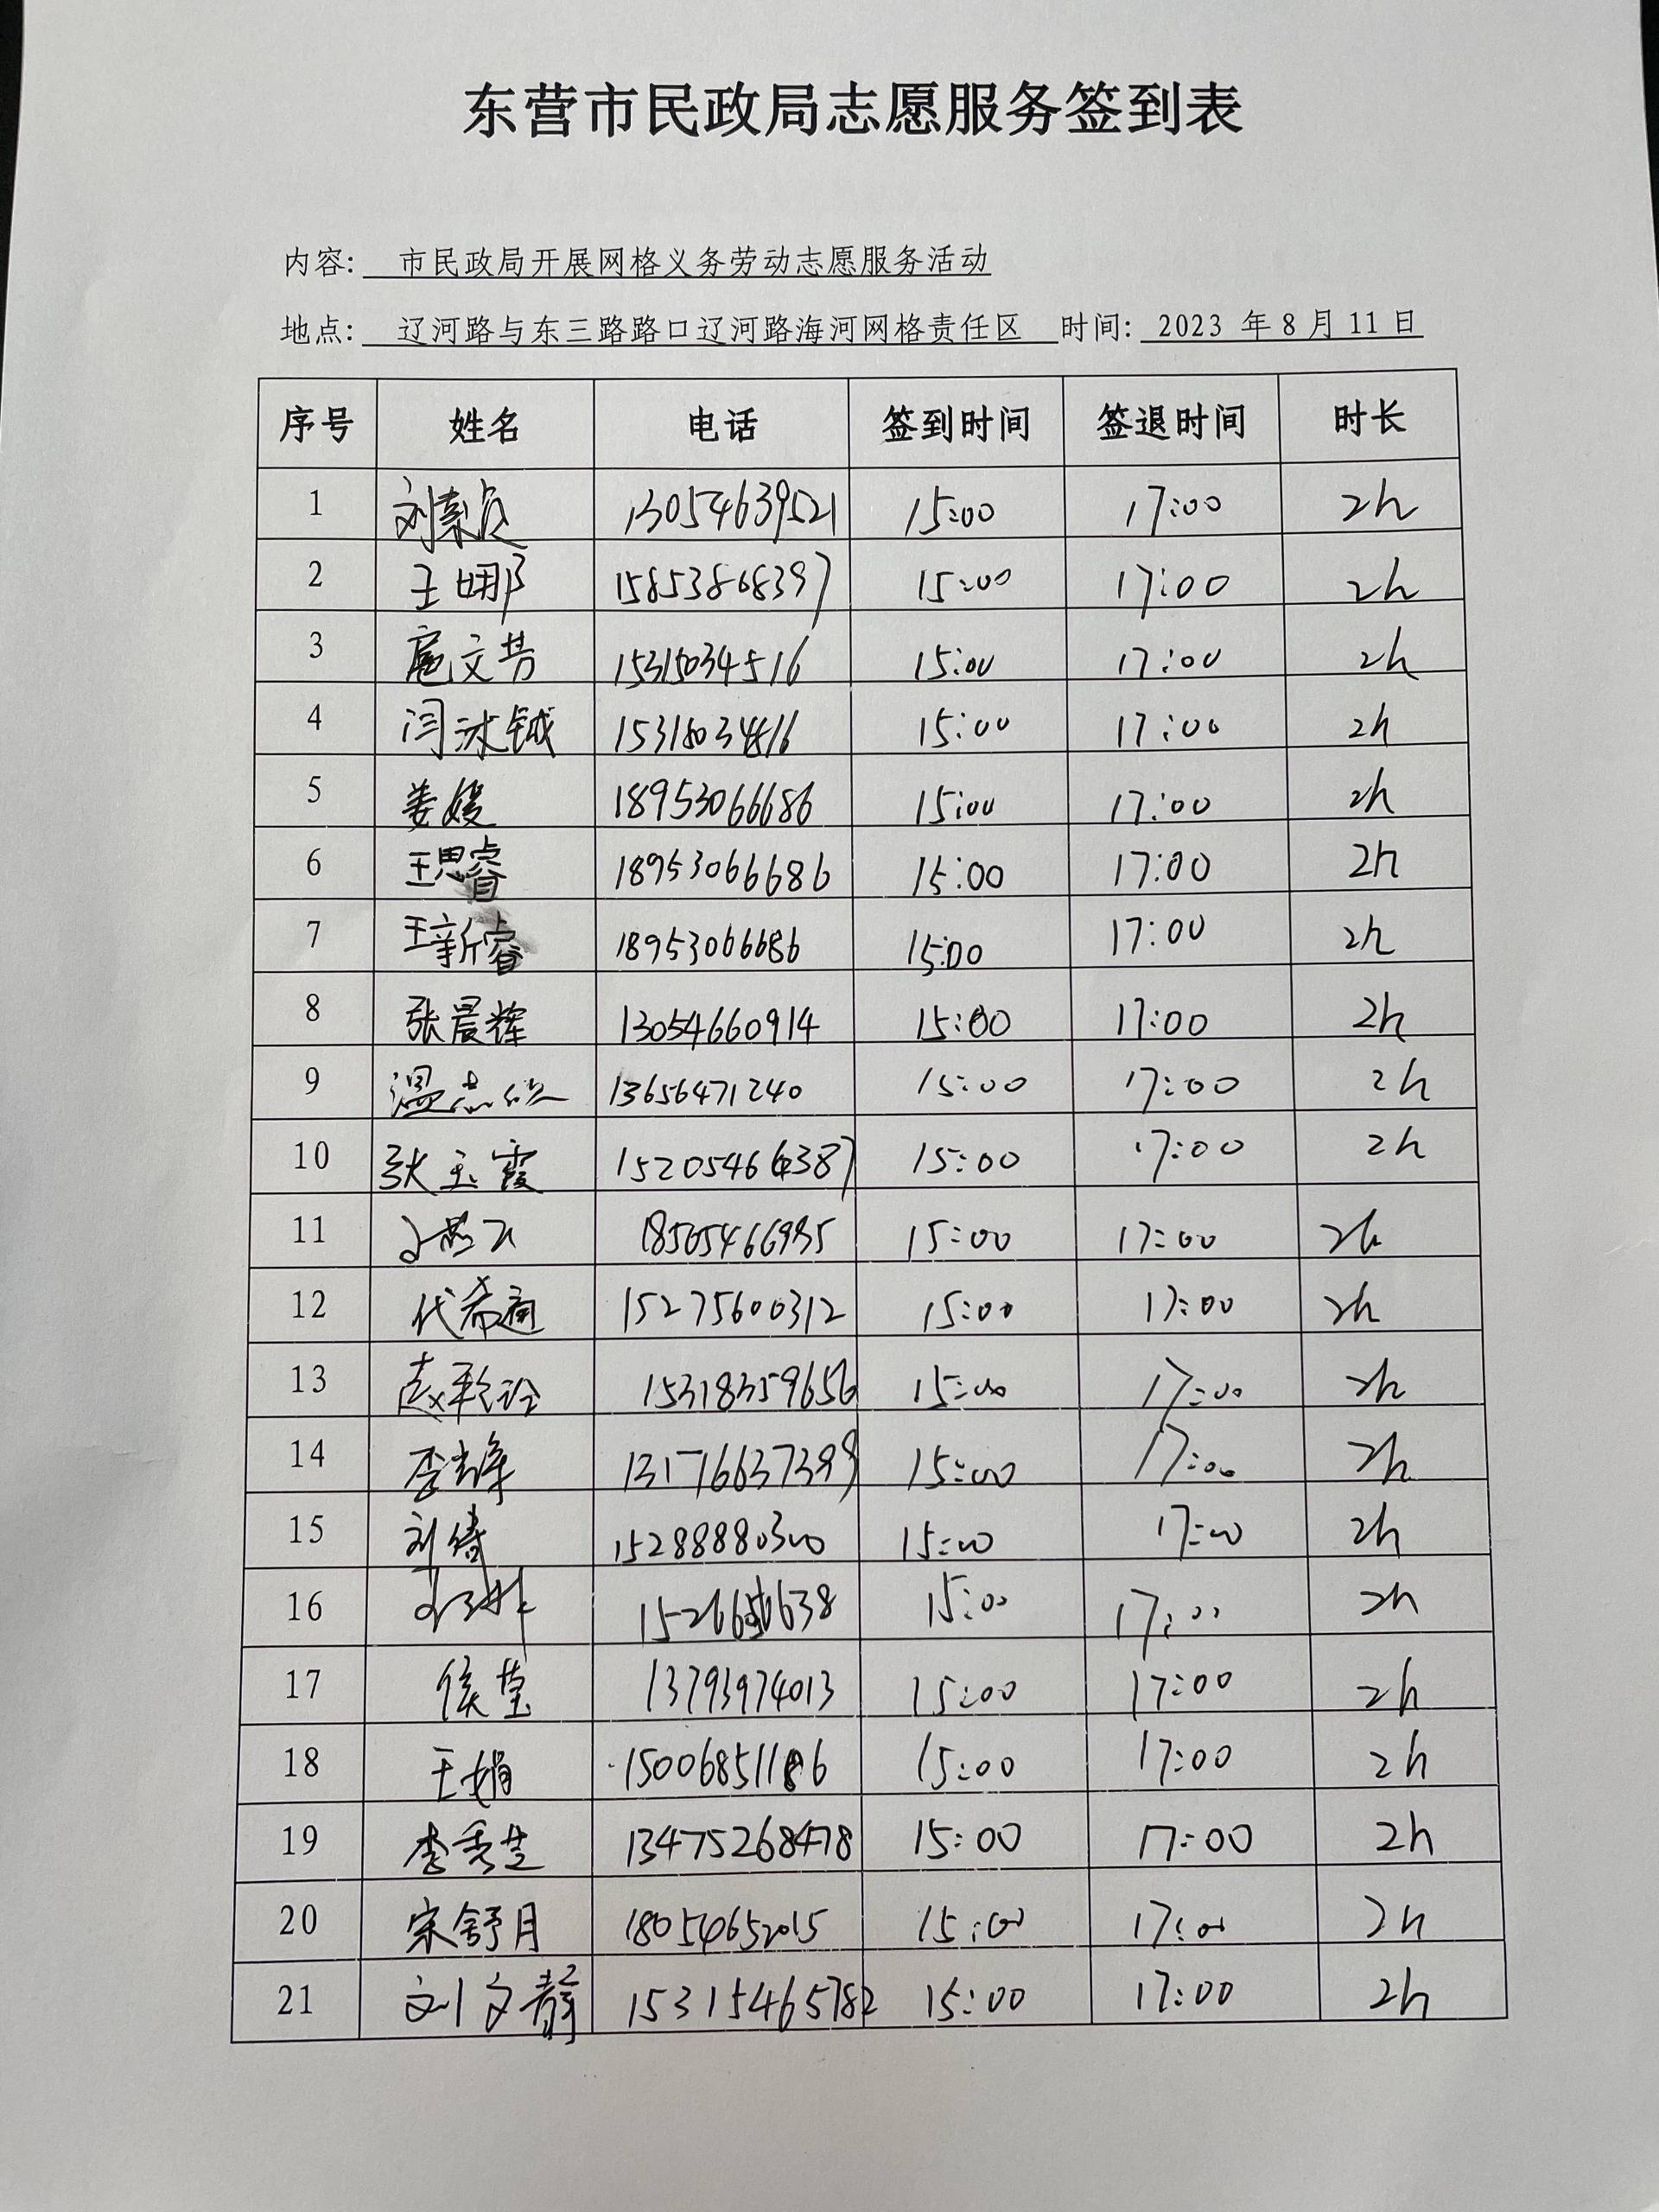 东营市民政局志愿服务签到表
内容: 市民政局开展网格义务劳动志愿服务活动
地点: 辽河路与东三路路口辽河路海河网格责任区 时间: 2023 年 8 月 11 日
序号 姓名 电话 签到时间 签退时间 时长
1 刘素贞 13054639521 15:00 17:00 2h
2 王娜 15853868397 15:00 17:00 2h
3 扈文芳 15315034516 15:00 17:00 2h
4 闫沭铖 15:00 17:00 2h
5 姜媛 18953066686 15:00 17:00 2h
6 王思睿 18953066686 15:00 17:00 2h
7 王新睿 18953066686 15:00 17:00 2h
8 张晨辉 13054660914 15:00 17:00 2h
9 温志 13656471240 15:00 17:00 2h
10 张玉霞 15205466387 15:00 17:00 2h
11 15:00 17:00 2h
12 代希通 15275600312 15:00 17:00 2h
13 赵 15318359656 15:00 17:00 2h
14 李 13176637399 15:00 17:00 2h
15 刘倩 15288880300 15:00 17:00 2h
16 15:00 17:00 2h
17 侯莹 13793974013 15:00 17:00 2h
18 王娟 15006851186 15:00 17:00 2h
19 李秀芝 13475268478 15:00 17:00 2h
20 宋舒月 18054652015 15:00 17:00 2h
21 刘文静 15315465782 15:00 17:00 2h